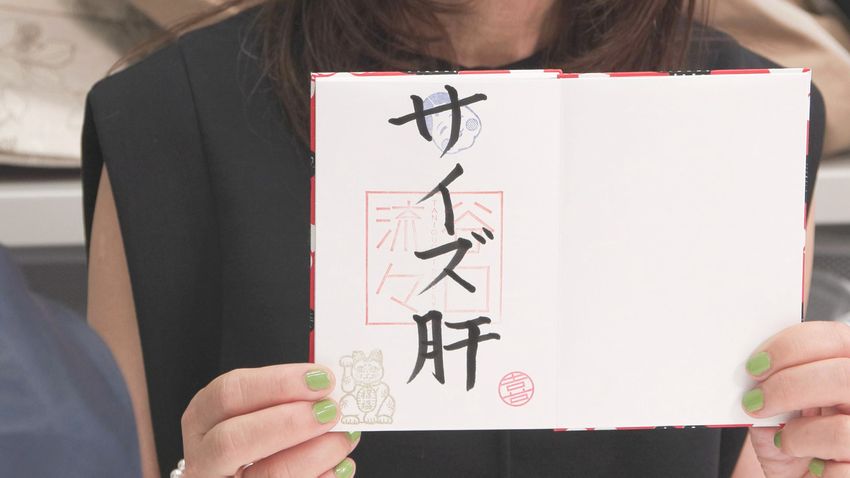 サイズ肝
谷口
流々
喜